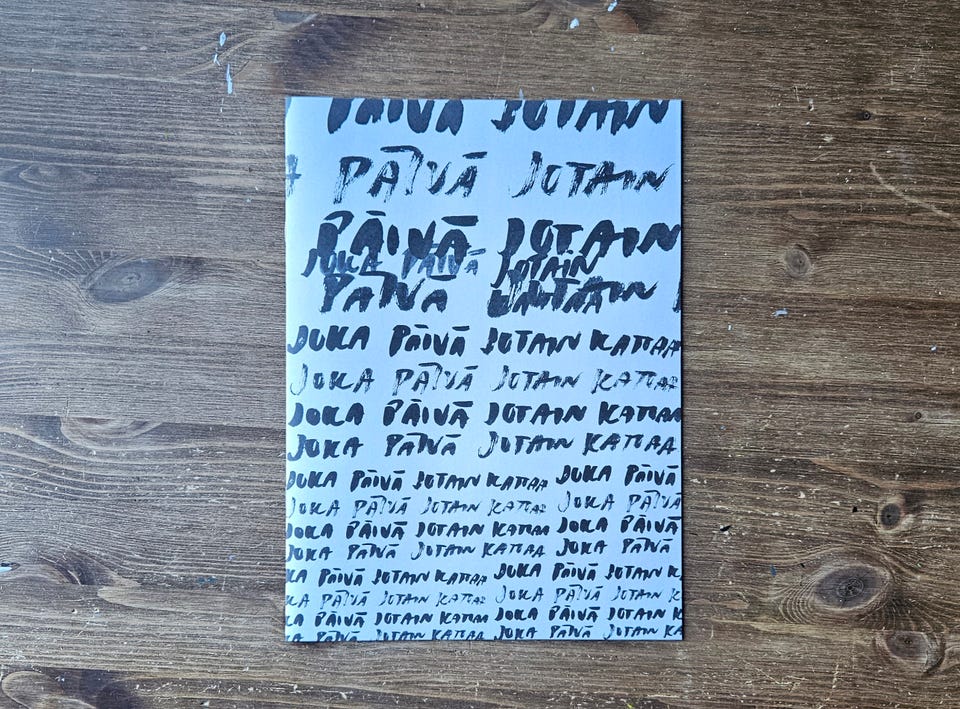 PÄIVÄ JOTAIN
A PÄIVÄ JOTAIN
PÄIVÄ JOTAIN
JOKA PÄIVÄ JOTAIN
PÄIVÄ
JOKA PÄIVÄ JOTAIN KATOAA
JOKA PÄIVÄ JOTAIN KATOAA
JOKA PÄIVÄ JOTAIN KATOAA
JOKA PÄIVÄ JOTAIN KATOAA
JOKA PÄIVÄ JOTAIN KATOAA JOKA PÄIVÄ
JOKA PÄIVÄ JOTAIN KATOAA JOKA PÄIVÄ
JOKA PÄIVÄ JOTAIN KATOAA JOKA PÄIVÄ
JOKA PÄIVÄ JOTAIN KATOAA JOKA PÄIVÄ
KA PÄIVÄ JOTAIN KATOAA JOKA PÄIVÄ JOTAIN K
KA PÄIVÄ JOTAIN KATOAA JOKA PÄIVÄ JOTAIN K
A PÄIVÄ JOTAIN KATOAA JOKA PÄIVÄ JOTAIN K
A PÄIVÄ JOTAIN KATOAA JOKA PÄIVÄ JOTAIN KA